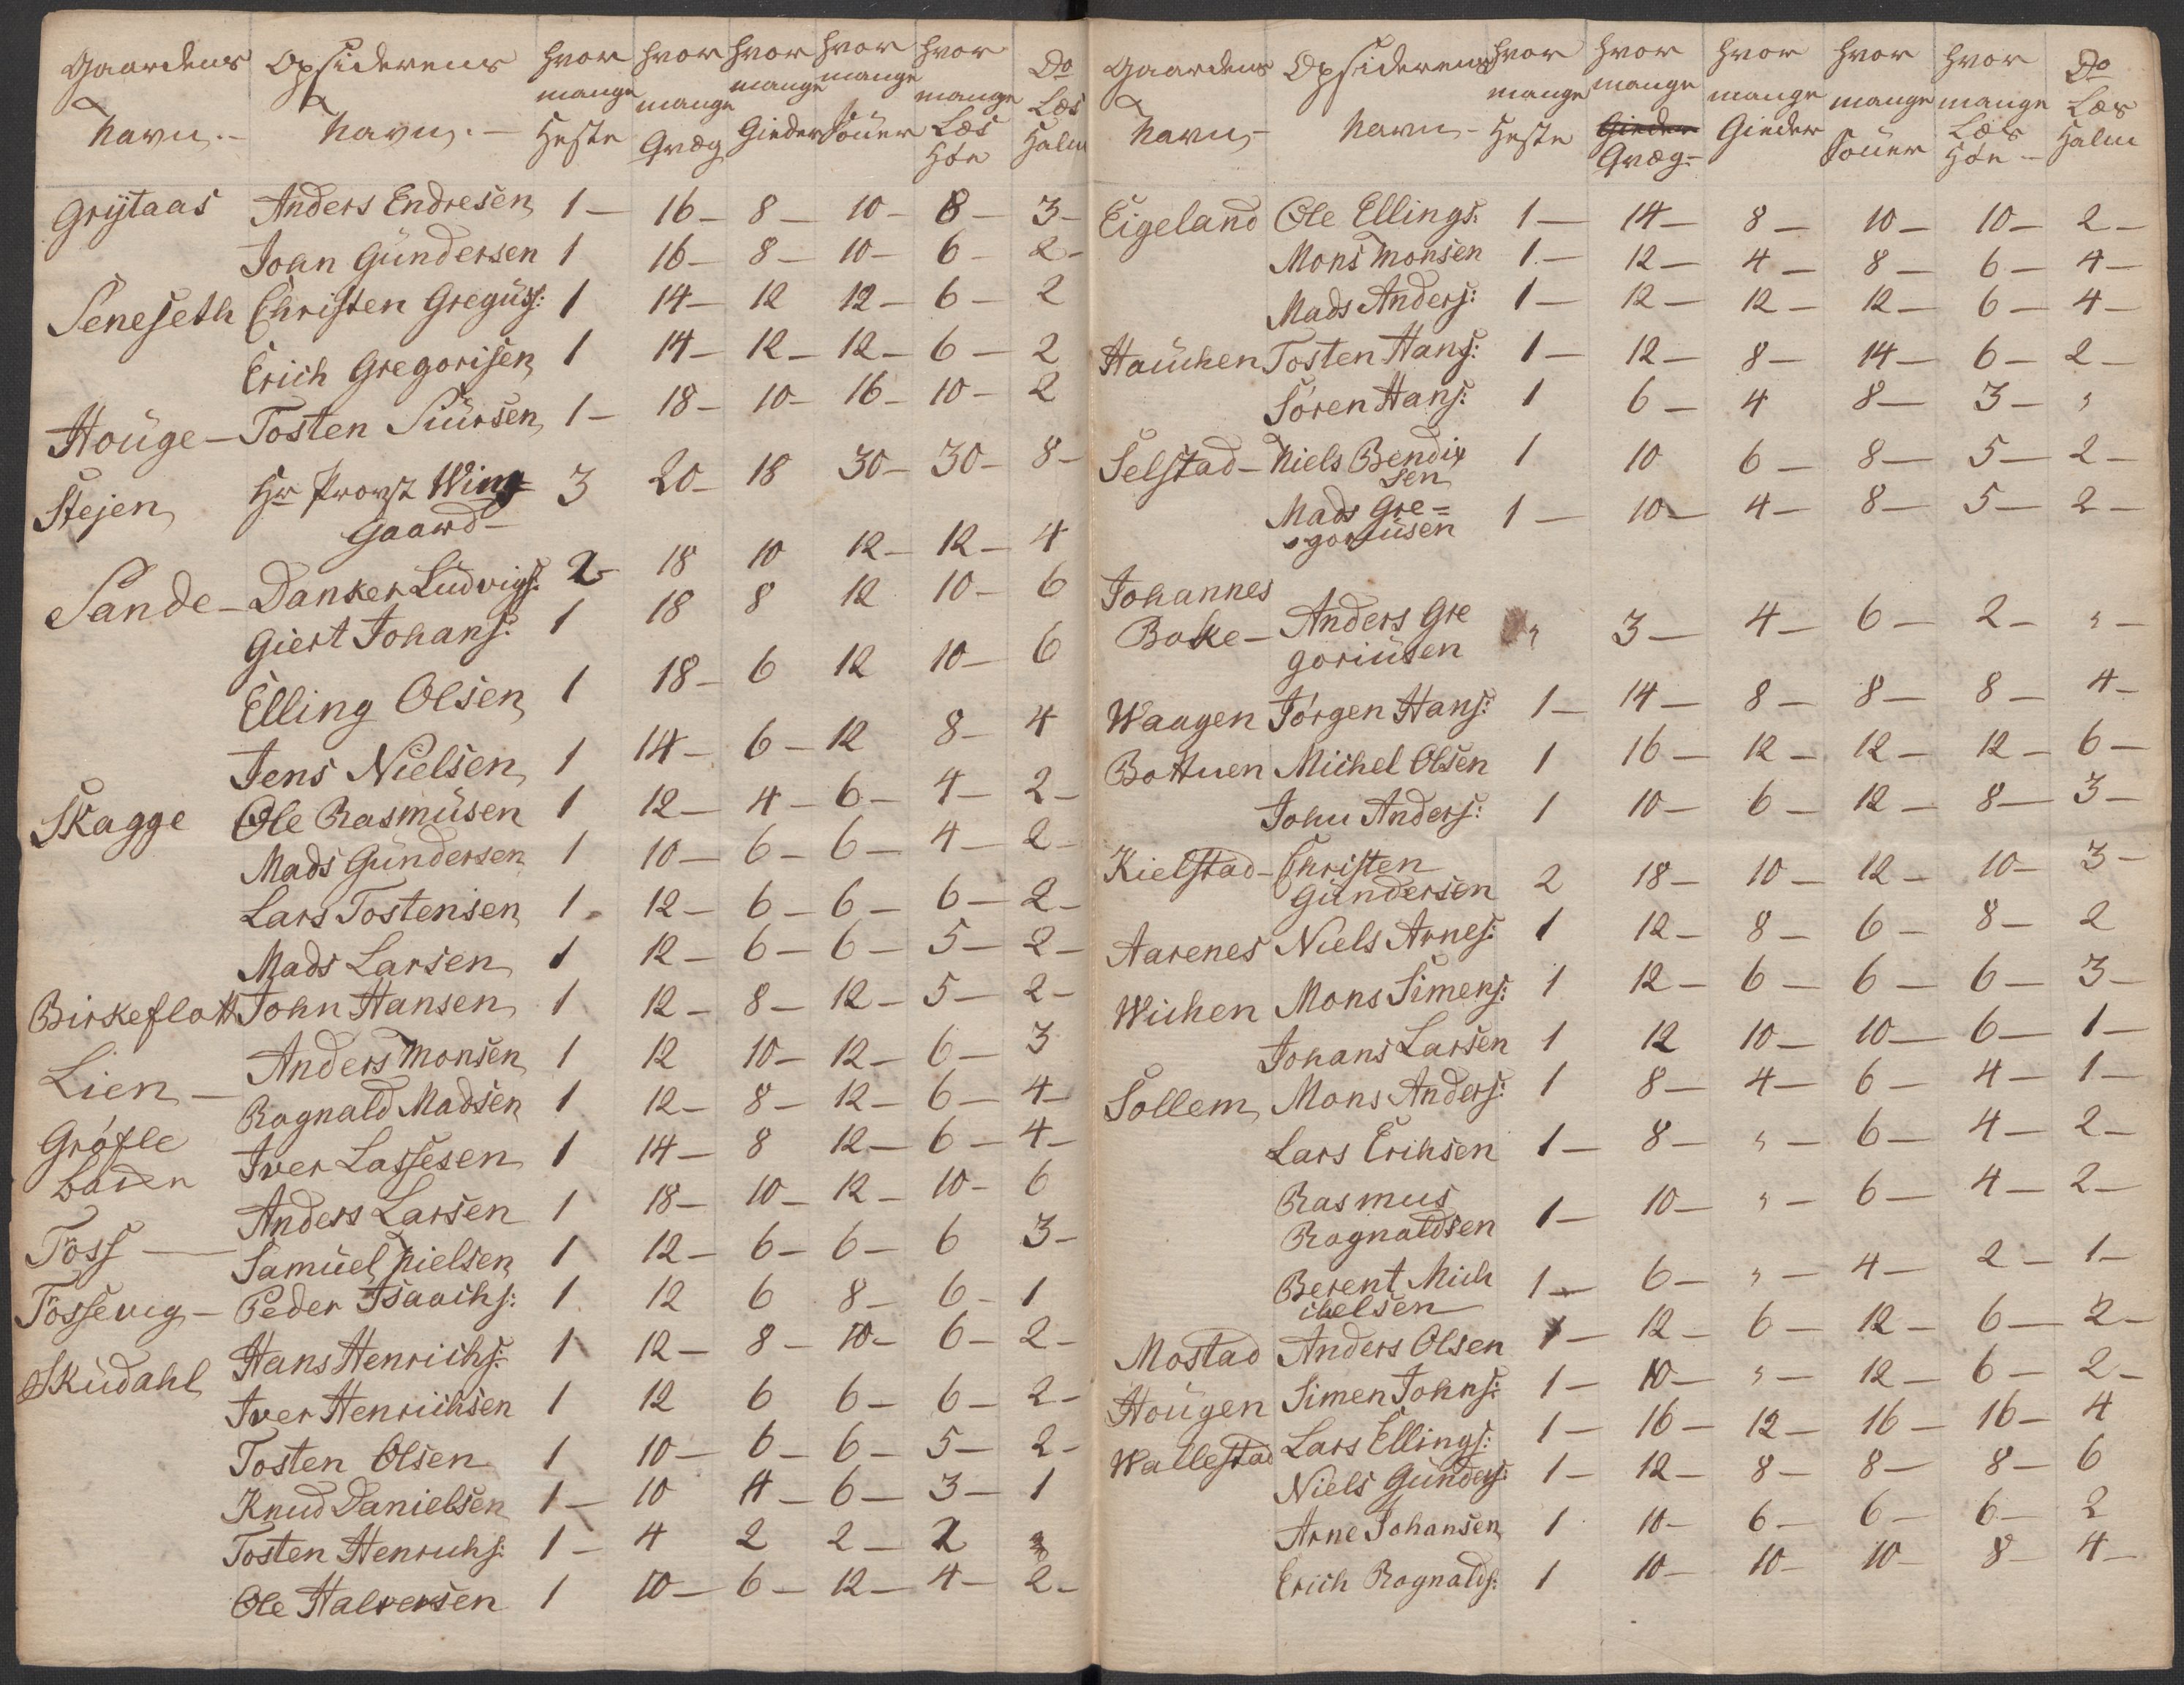 Gaardens Opsiderens hvor hvor hvor hvor hvor Do
mange mange mange mange mange Læs
Navn.- Navn.- Heste Qvæg Gieder Souer Læs Høe Halm
Grÿtaas Anders Endresen 1- 16- 8- 10- 8- 3-
Joan Gündersen 1 16- 8- 10- 6- 2-
Seneseth Christen Gregüss: 1 14- 12 12- 6- 2
Erich Gregorisen 1 14- 12- 12- 6- 2
Houge- Tosten Siursen 1- 18- 10- 16- 10- 2
Stejen Hr Provst Wim= 3 20- 18 30- 30- 8-
gaard-
Sande- Danker Ludvigs: 2- 18 10 12- 12- 4
Giert Johans: 1 18 8 12 10- 6
Elling Olsen 1 18- 6 12 10- 6
Jens Nielsen 1 14- 6- 12 8- 4
Skagge Ole Rasmüsen 1 12- 4- 6- 4- 2-
Mads Gündersen 1 10- 6- 6- 4- 2-
Lars Tostensen 1- 12- 6- 6- 6- 2-
Mads Larsen 1 12- 6- 6- 5- 2-
Birkeflott John Hansen 1 12- 8- 12- 5- 2-
Lien- Anders Monsen 1 12 10- 12- 6- 3
Rognald Madsen 1 12- 8- 12- 6- 4-
Grøfle
baden Iver Lassesen 1 14- 8 12- 6- 4-
Anders Larsen 1 18- 10- 12- 10- 6
Foss- Samuel Nielsen 1 12- 6- 6- 6 3-
Fossevig- Peder Isaachs: 1 12 6 8- 6- 1
Skudahl Hans Henrichs: 1 12- 8- 10- 6- 2-
Iver Henrichsen 1 12 6 6- 6- 2-
Tosten Olsen 1 10- 6- 6- 5- 2-
Knud Danielsen 1- 10 4- 6- 3- 1
Tosten Henrichs: 1- 4 2 2- 2
Ole Halversen 1 10- 6- 12- 4- 2-
Gaardens Opsiderens hvor hvor hvor hvor hvor Do
mange mange mange mange mange Læs
Navn- Navn- Heste Gieder Qvæg- Gieder Souer Læs Høe- Halm
Eigeland Ole Ellings: 1- 14- 8- 10- 10- 2-
Mons Monsen 1- 12- 4- 8- 6- 4-
Mads Anders: 1- 12- 12- 12- 6- 4-
Hauchen Tosten Hans: 1- 12- 8- 14- 6- 2-
Søren Hans: 1 6- 4 8- 3- "
Selstad- Niels Bendix 1 10 6- 8- 5- 2-
sen
Mads Gre= 1- 10- 4- 8- 5- 2-
goriüsen
Johannes
Boke- Anders Gre " 3- 4- 6- 2- "-
goriüsen
Waagen Jørgen Hans: 1- 14- 8- 8- 8- 4-
Bottuen Michel Olsen 1 16- 12- 12- 12- 6-
John Anders: 1 10- 6- 12- 8- 3-
Kielstad- Christen
Gündersen 2 18- 10- 12- 10- 3-
Aarenes Niels Arnes: 1 12- 8- 6- 8- 2
Wichen Mons Simens: 1 12- 6- 6- 6- 3-
Johans Larsen 1 12 10- 10- 6- 1-
Sollem Mons Anders: 1 8- 4- 6- 4- 1-
Lars Erichsen 1- 8- "- 6- 4- 2-
Rasmus
Rognaldsen 1- 10- "- 6- 4- 2-
Berent Mich 1- 6- "- 4- 2- 1-
ichelsen
Mostad Anders Olsen 1- 12- 6- 12- 6- 2-
Hougen Simen Johns: 1- 10- "- 12- 6- 2-
Wallestad Lars Ellings: 1- 16- 12- 16- 16- 4
Niels Gunders: 1- 12- 8- 8- 8- 6
Arne Johansen 1 10- 6- 6- 6- 2
Erich Rognalds: 1 10- 10- 10- 8- 4-